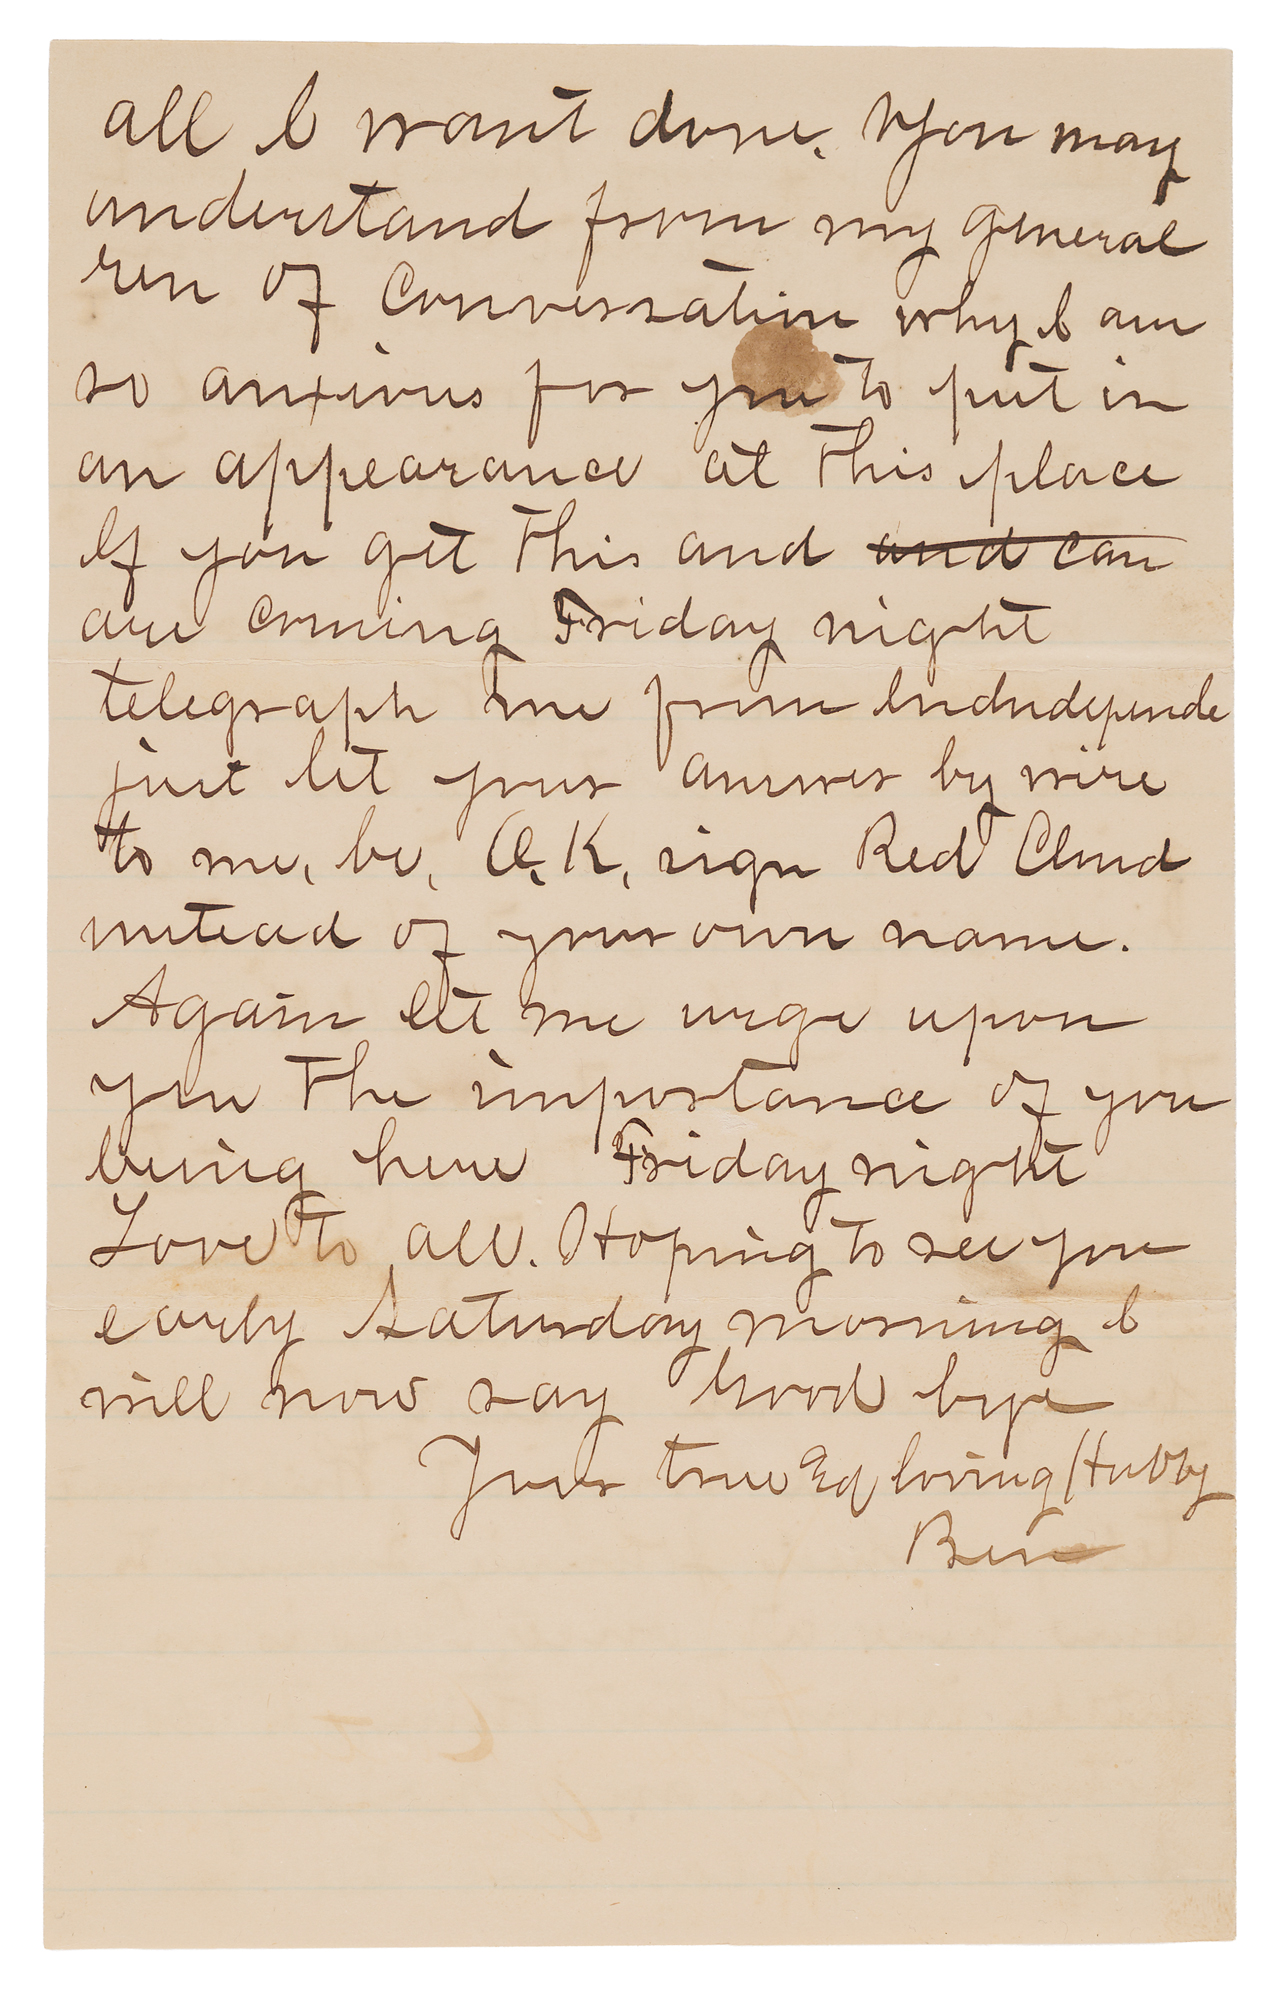 all I want done. You may
understand from my general
run of Conversation why I am
so anxious for you to put in
an appearance at this place
If you get this and and can
are coming Friday night
telegraph me from Indndepende
just let your answer by wire
to me, be, O.K, sign Red Cloud
instead of your own name.
Again let me urge upon
you the importance of you
being here Friday night
Love to all. Hoping to see you
early Saturday morning I
will now say Good bye
Your true & loving Hubby
Ben